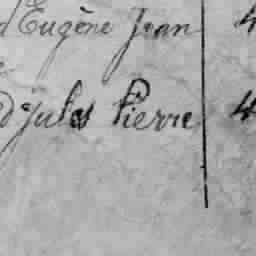 d Eugène Jean 4
d Jules Pierre 4